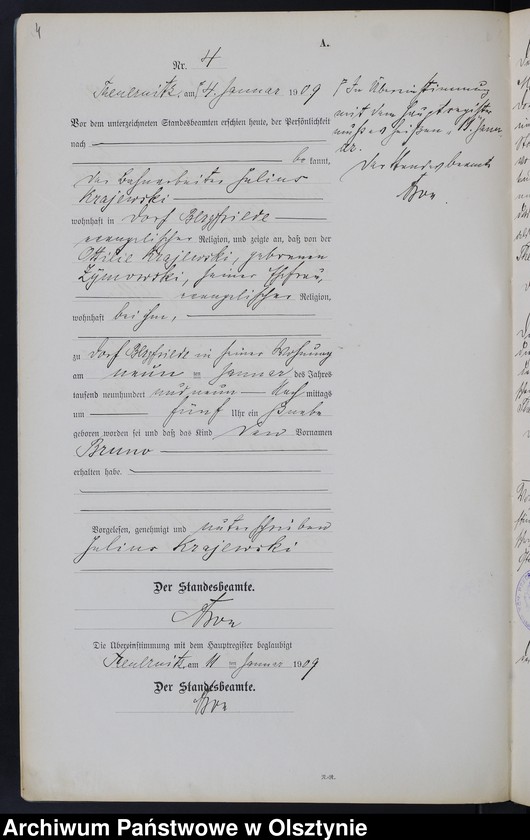 4
A.
Nr. 4
am 14. Januar 1909
Vor dem unterzeichneten Standesbeamten erschien heute, der Persönlichkeit
nach
be kannt,
der Bahnarbeiter Julius
Krajewski
wohnhaft in Dorf Elspfriede
evangelischer Religion, und zeigte an, daß von der
Ottilie Krajewski, geborenen
seiner Ehefrau,
evangelischer Religion,
wohnhaft bei ihm,
zu Dorf Elspfriede in seiner Wohnung
am neun ten Januar des Jahres
tausend neunhundert und neun Nach mittags
um fünf Uhr ein Knabe
geboren worden sei und daß das Kind den Vornamen
Bruno
erhalten habe.
Vorgelesen, genehmigt und unterschrieben
Julius Krajewski
Der Standesbeamte.
Die Übereinstimmung mit dem Hauptregister beglaubigt
am 11 ten Januar 1909
Der Standesbeamte.
In Übereinstimmung
mit dem Hauptregister
muß es heißen: 11. Janu-
ar.
Der Standesbeamte
Archiwum Państwowe w Olsztynie